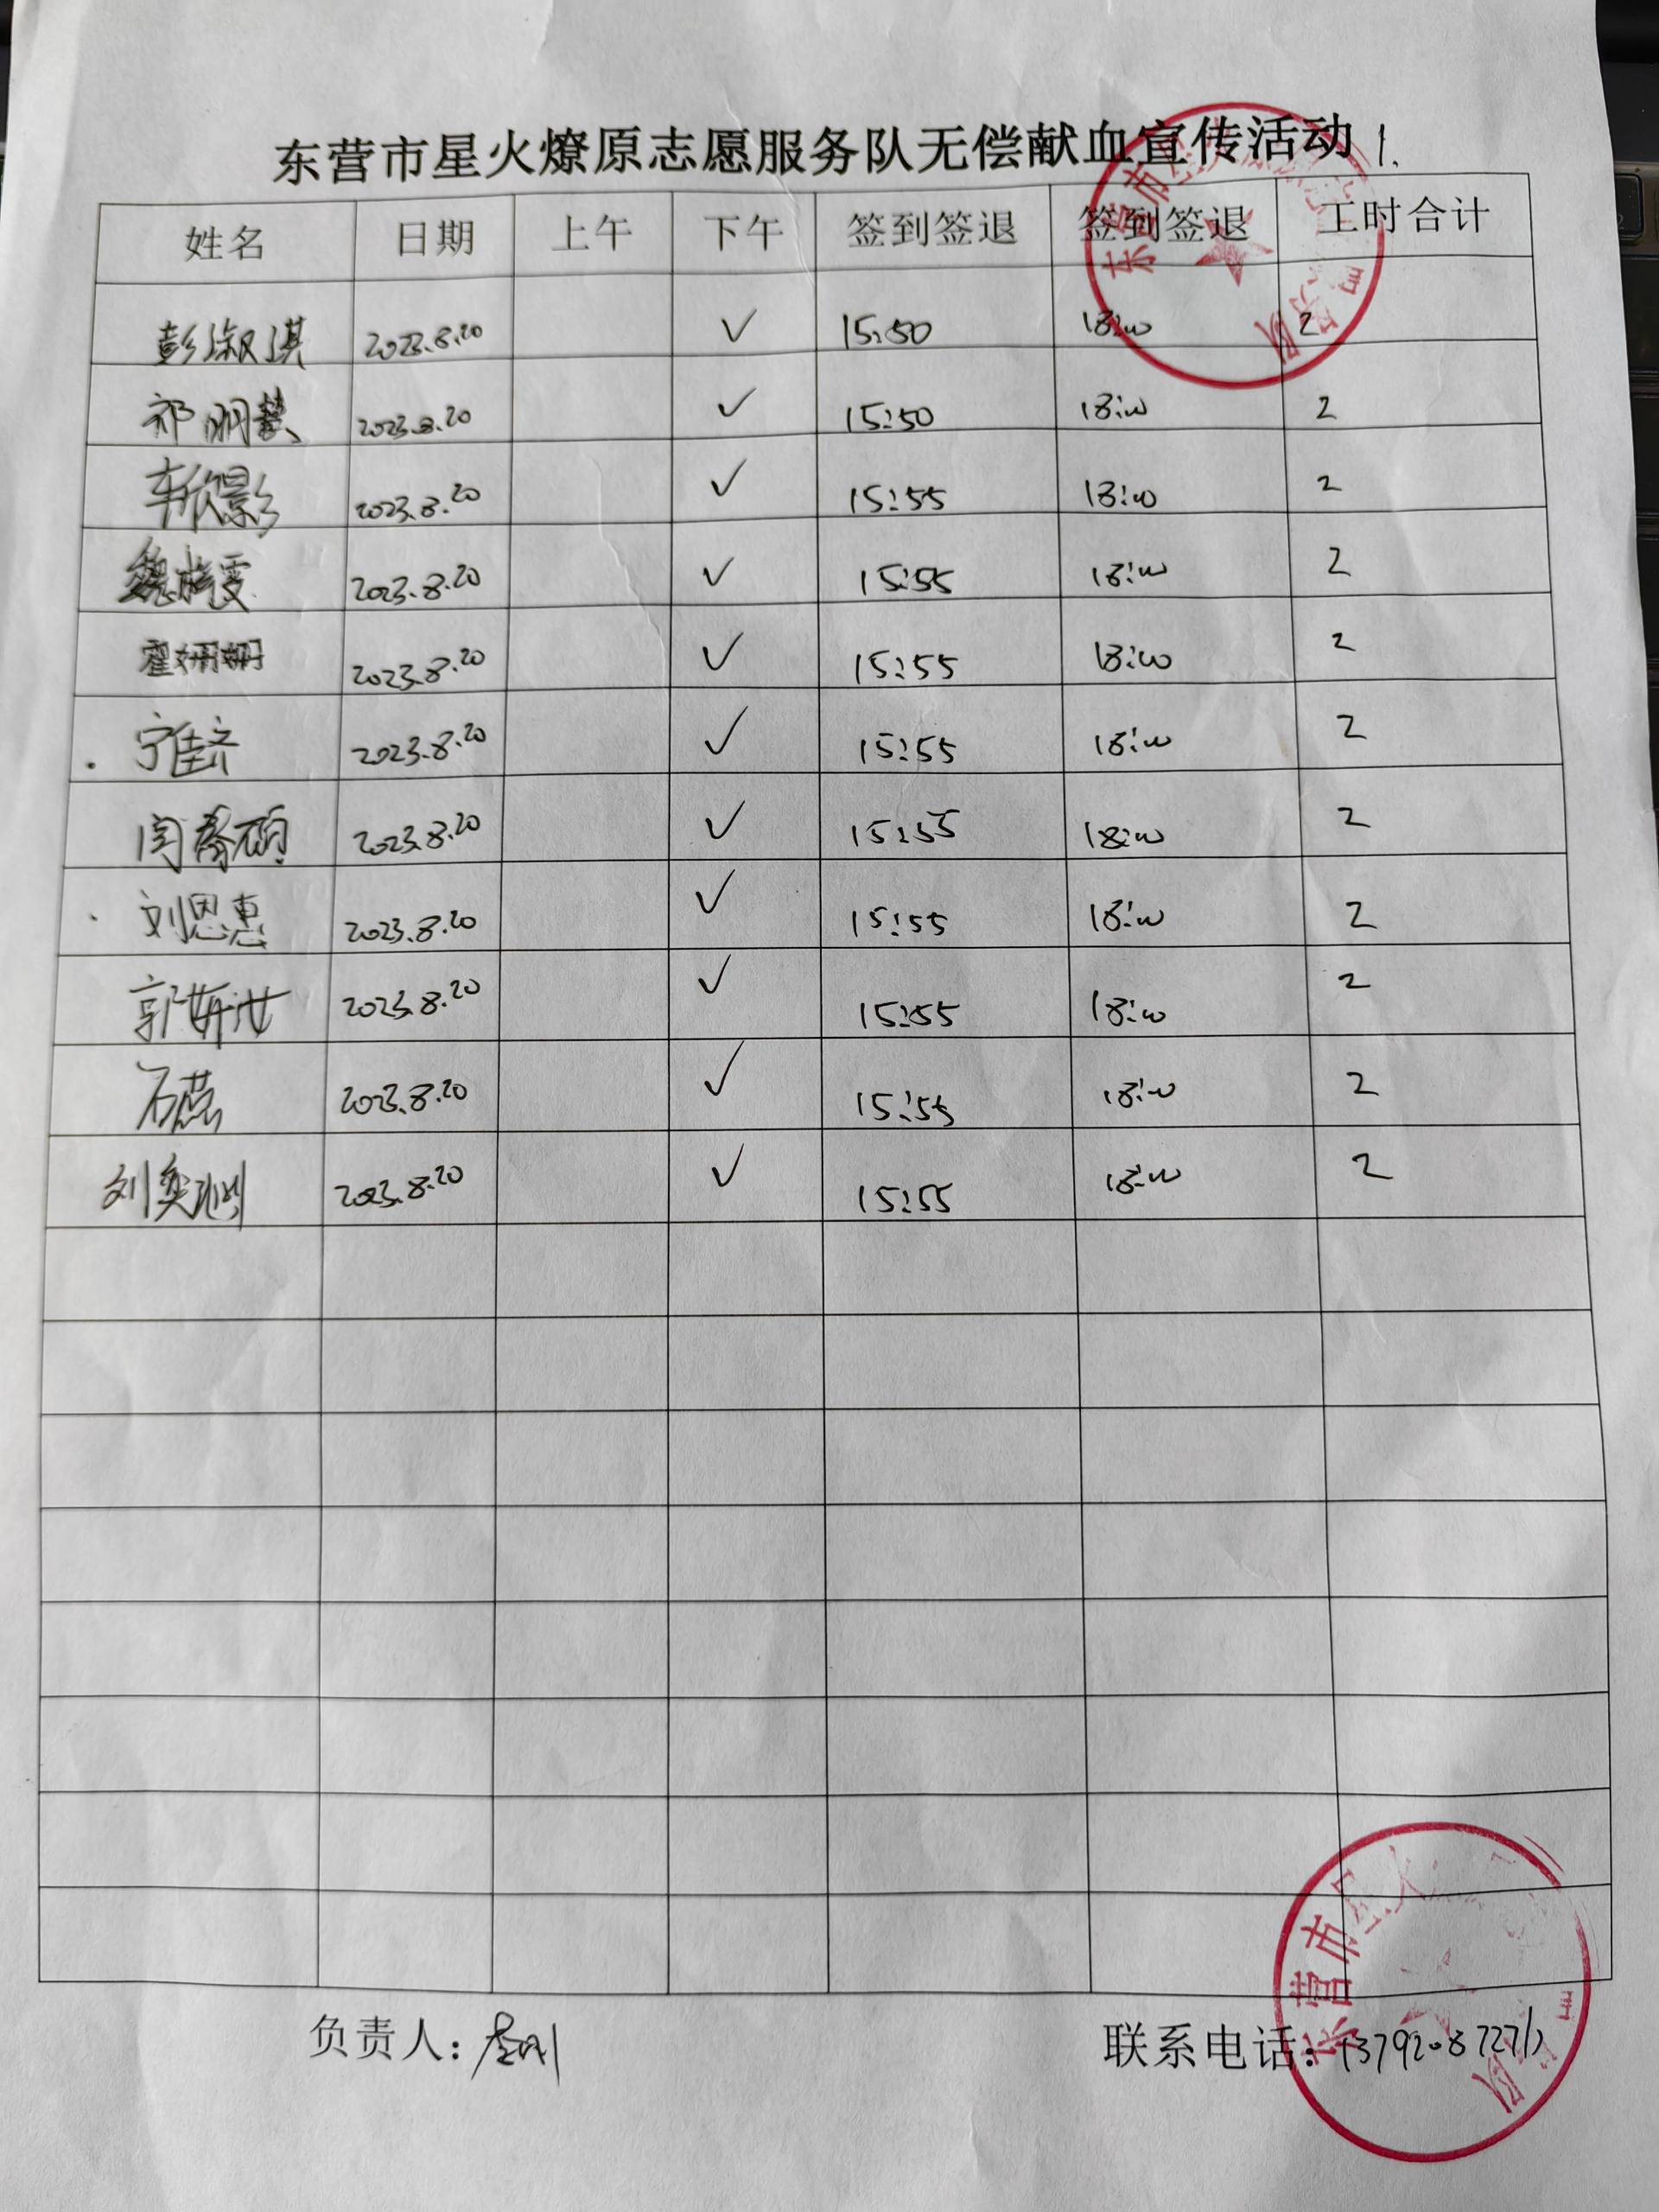 东营市星火燎原志愿服务队无偿献血宣传活动 1.
姓名 日期 上午 下午 签到签退 签到签退 工时合计
彭淑淇 2023.8.20 ✓ 15:50 18:00 2
祁明慧 2023.8.20 ✓ 15:50 18:00 2
车欣影 2023.8.20 ✓ 15:55 18:00 2
魏彬雯 2023.8.20 ✓ 15:55 18:00 2
霍姗姗 2023.8.20 ✓ 15:55 18:00 2
宁佳齐 2023.8.20 ✓ 15:55 18:00 2
闫 硕 2023.8.20 ✓ 15:55 18:00 2
刘恩惠 2023.8.20 ✓ 15:55 18:00 2
郭妍汝 2023.8.20 ✓ 15:55 18:00 2
石燕 2023.8.20 ✓ 15:55 18:00 2
刘奕 2023.8.20 ✓ 15:55 18:00 2
负责人: 联系电话:
东营市星火